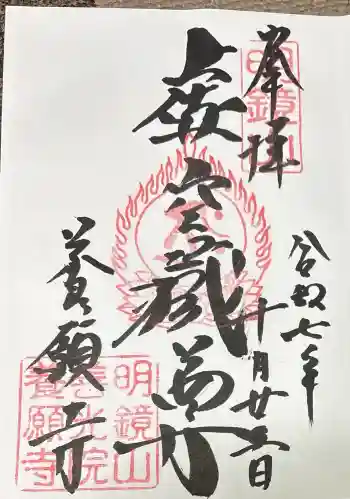 奉拝
令和七年
十月廿五日
虚空蔵尊
養願寺
明鏡山
善光院
養願寺